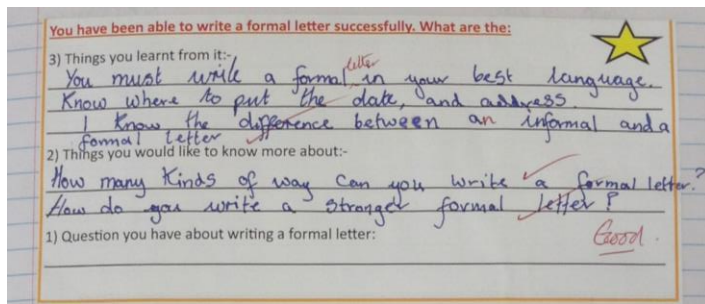 You have been able to write a formal letter successfully. What are the:
3) Things you learnt from it:-
You must write a formal letter in your best language.
Know where to put the date, and address.
I know the difference between an informal and a
formal letter
2) Things you would like to know more about:-
How many kinds of way can you write a formal letter?
How do you write a stronger formal letter?
1) Question you have about writing a formal letter:
Good.